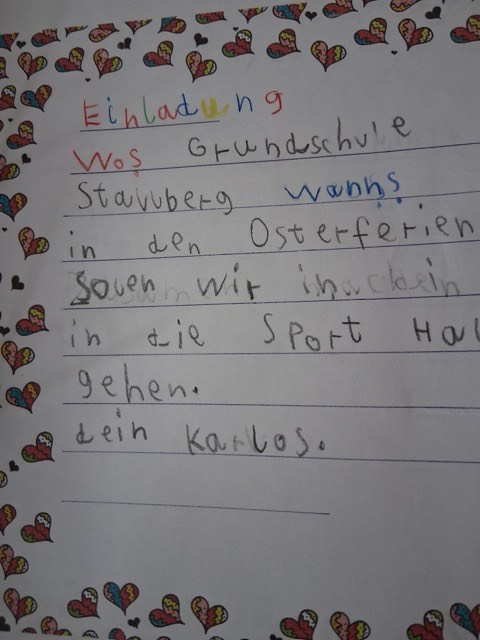 Einladung
Wo? Grundschule
Stallberg Wann?
in den Osterferien
Sollen wir
in die Sport Hal
gehen.
dein Karlos.